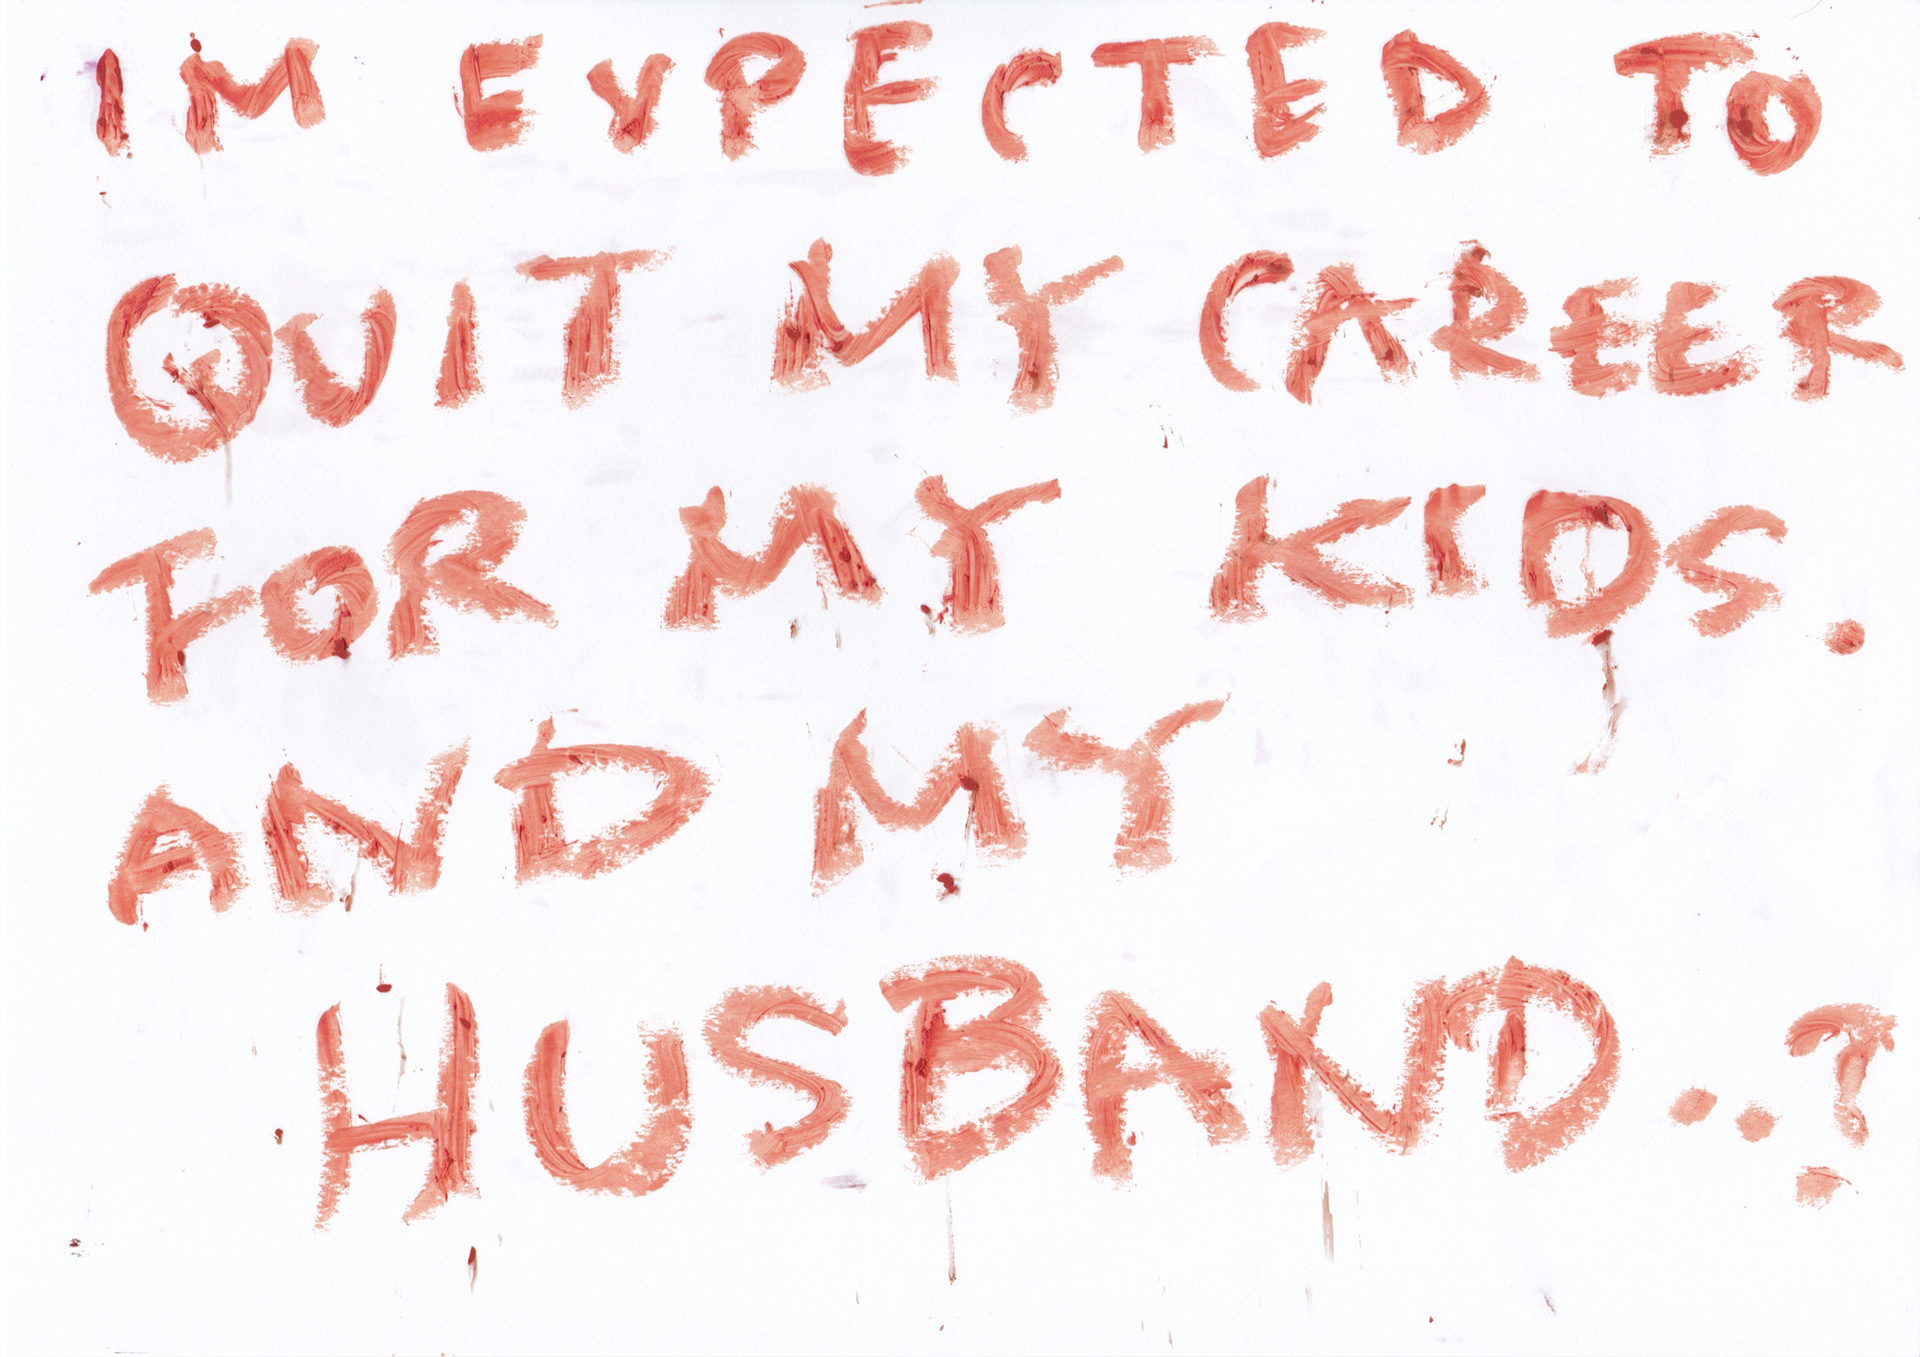 IM EVPECTED TO
QUIT MY CAREER
FOR MY KIDS.
AND MY
HUSBAND..?